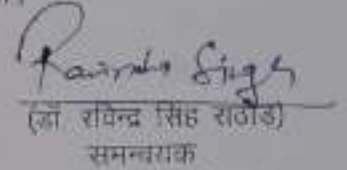 Ravindra Singh
(डॉ रविन्द्र सिंह राठौड़)
समन्वयक